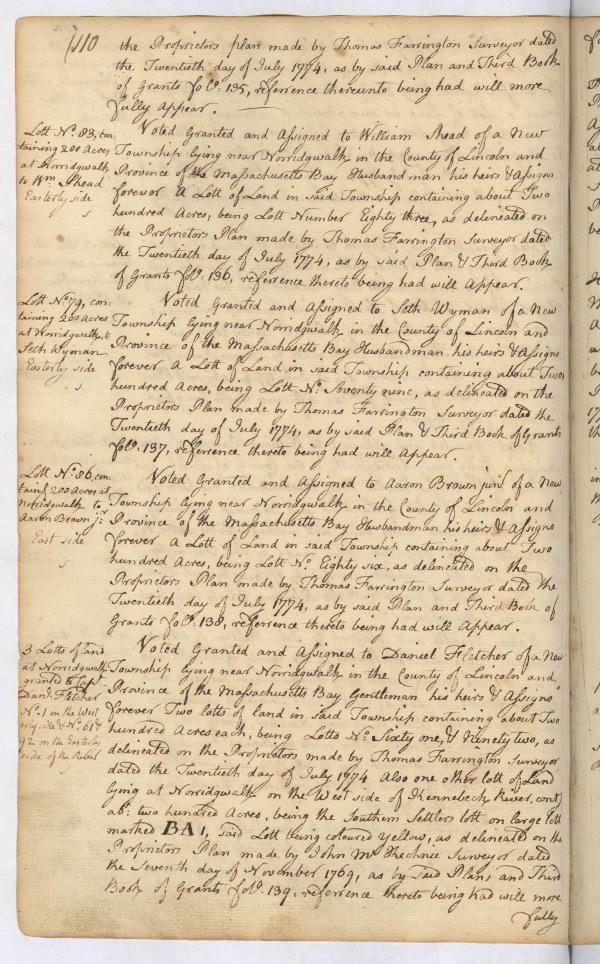 110
the Proprietors plan made by Thomas Farrington Surveyor dated
the Twentieth day of July 1774, as by said Plan and Third Book
of Grants folo. 135, reference thereunto being had will more
fully Appear.
Lott No. 83, con-
taining 200 Acres
at Norridgwalk
to Wm. Shead
Easterly side
Voted Granted and Assigned to William Shead of a New
Township lying near Norridgwalk in the County of Lincoln and
Province of the Massachusetts Bay Husbandman his heirs & Assigns
forever A Lott of Land in said Township containing about Two
hundred Acres, being Lott Number Eighty three, as delineated on
the Proprietors Plan made by Thomas Farrington Surveyor dated
the Twentieth day of July 1774, as by said Plan & Third Book
of Grants folo. 136, reference thereto being had will Appear.
Lott No. 79, con-
taining 200 Acres
at Norridgwalk, to
Seth Wyman
Easterly side
Voted Granted and Assigned to Seth Wyman of a New
Township lying near Norridgwalk in the County of Lincoln and
Province of the Massachusetts Bay Husbandman his heirs & Assigns
forever A Lott of Land in said Township containing about Two
hundred Acres, being Lott No. Seventy nine, as delineated on the
Proprietors Plan made by Thomas Farrington Surveyor dated the
Twentieth day of July 1774, as by said Plan & Third Book of Grants
folo. 137, reference thereto being had will Appear.
Lott No. 86, con-
taing. 200 Acres at
Norridgwalk to
Aaron Brown jr.
East side
Voted Granted and Assigned to Aaron Brown junr. of a New
Township lying near Norridgwalk in the County of Lincoln and
Province of the Massachusetts Bay Husbandman his heirs & Assigns
forever A Lott of Land in said Township containing about Two
hundred Acres, being Lott No. Eighty six, as delineated on the
Proprietors Plan made by Thomas Farrington Surveyor dated the
Twentieth day of July 1774, as by said Plan and Third Book of
Grants folo. 138, reference thereto being had will Appear.
3 Lotts of land
at Norridgwalk
granted to Capt.
Danl. Fletcher
No. 1 on the West-
erly side & No. 61 &
92 on the Easterly
side of the River
Voted Granted and Assigned to Daniel Fletcher of a New
Township lying near Norridgwalk in the County of Lincoln and
Province of the Massachusetts Bay Gentleman his heirs & Assigns
forever Two lotts of land in said Township containing about Two
hundred Acres each, being Lotts No. Sixty one, & Ninety two, as
delineated on the Proprietors made by Thomas Farrington Surveyor
dated the Twentieth day of July 1774 Also one other lott of Land
lying at Norridgwalk on the West side of Kennebeck River, contg.
abt. two hundred Acres, being the Southern Settlers lott on large lott
marked BA 1, said Lott being coloured Yellow, as delineated on the
Proprietors Plan made by John Mc Kechnee Surveyor dated
the Seventh day of November 1769, as by said Plans and Third
Book of Grants folo. 139, reference thereto being had will more
fully